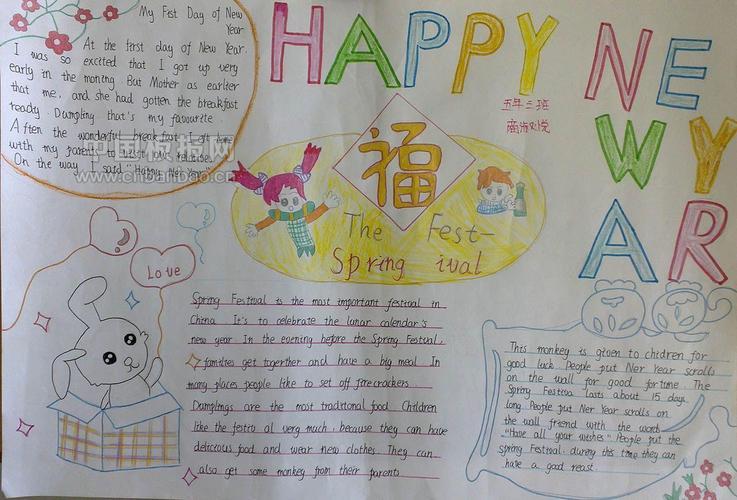 My Fist Day of New
Year
At the first day of New Year.
I was so excited that I got up very
early in the moning. But Mother as earlier
that me, and she had gotten the breakfast
ready Dumpling that's my favourite.
Aften the wonderful breakfast I left
with my parents to visit relatives.
On the way I said "Happy New Year"
中国板报网
www.cnbanbao.cn
HAPPY NEW
YEAR
五年三班
福
The Fest-
Spring ival
Love
Spring Festival is the most important festival in
China It's to celebrate the lunar calendar's
new year In the evening before the Spring Festival,
families get together and have a big meal In
many places people like to set off firecrackers.
Dumplings are the most traditional food Children
like the festival very much, because they can have
delicious food and wear new clothes. They can
also get some monkey from their parents
This monkey is given to children for
good luck People put Ner Year scrolls
on the wall for good fortune The
Spring Festiva lasts about 15 days
long People put Ner Year scrolls on
the wall friend with the words
"Have all your wishes" People put the
spring Festival, during this time they can
have a good reast